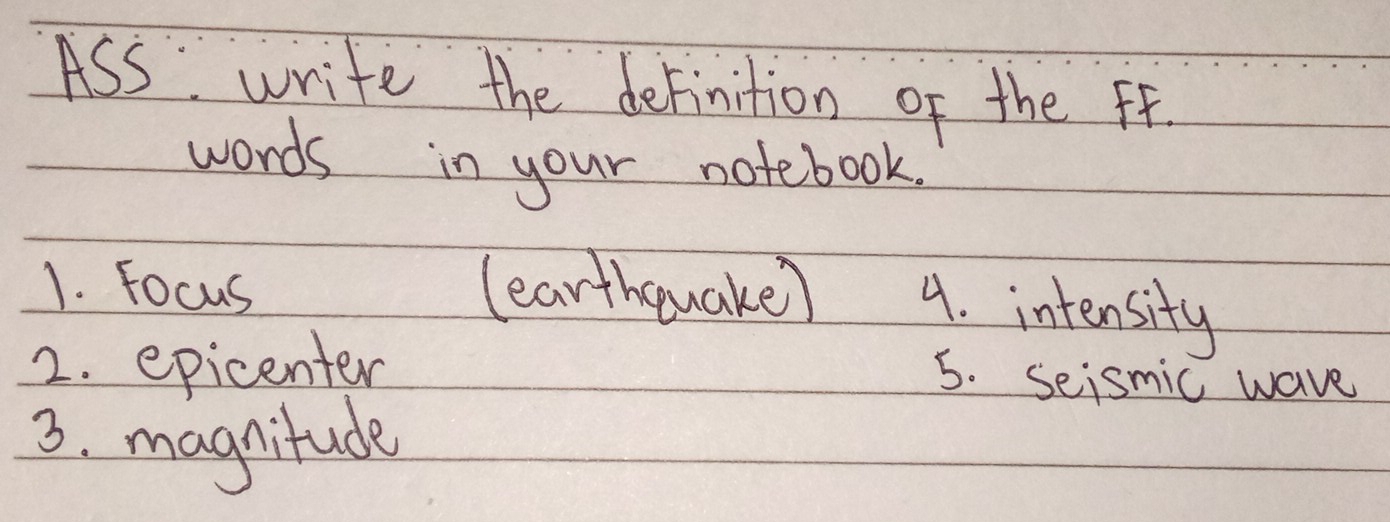 ASS: write the definition of the FF.
words in your notebook.
1. Focus (earthquake) 4. intensity
2. epicenter 5. seismic wave
3. magnitude